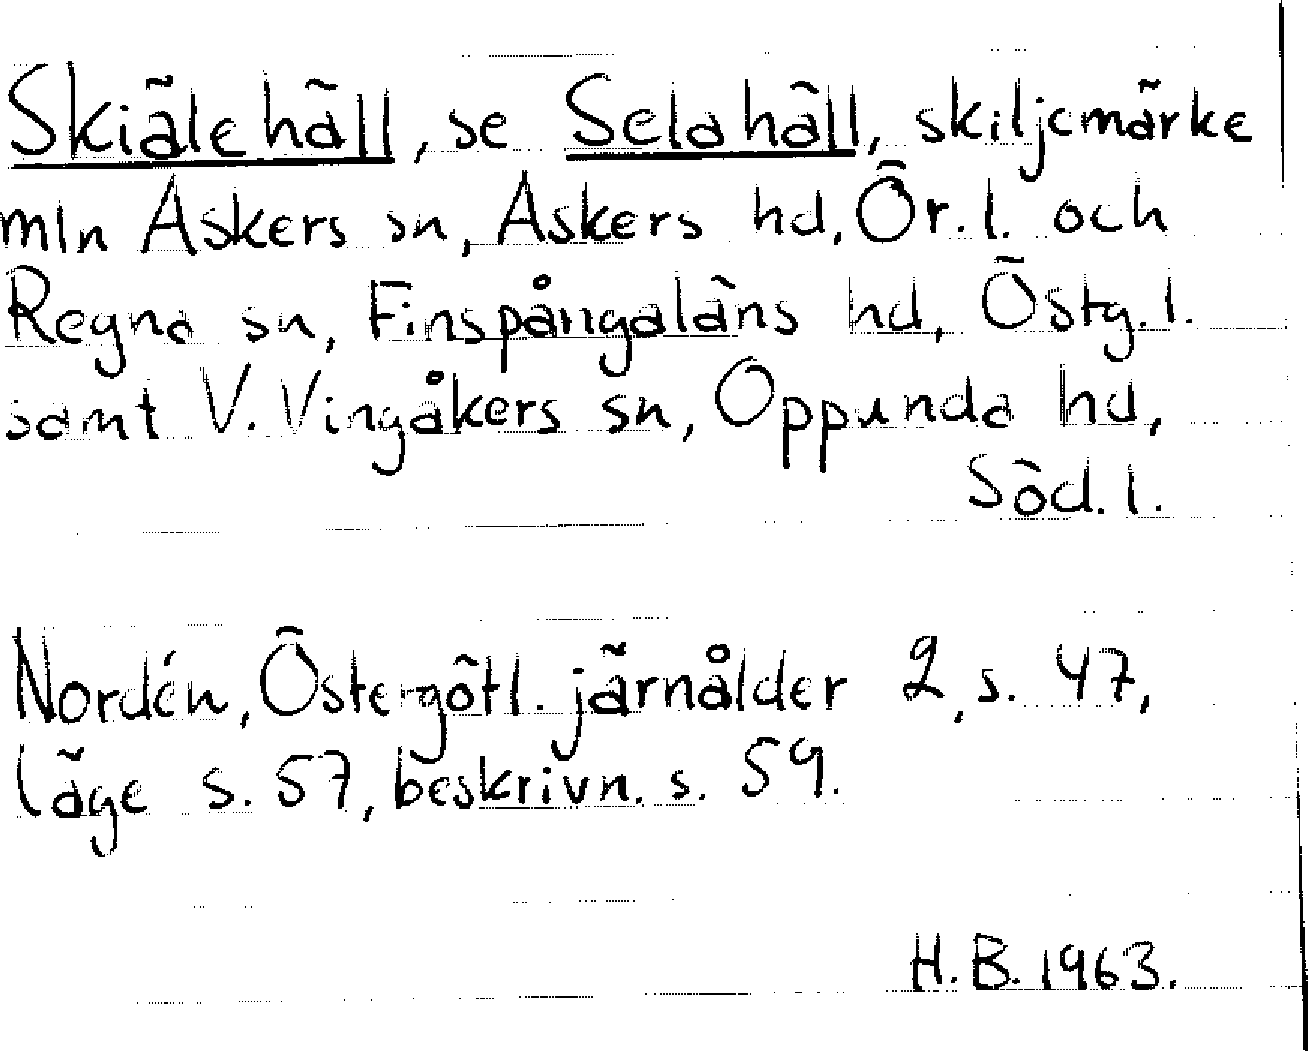 Skiälehäll, se Selahäll, skiljemärke
mln Askers sn, Askers hd, Ör.l. och
Regna sn, Finspångaläns hd, Östg.l.
samt V. Vingåkers sn, Oppunda hd,
Söd.l.
Nordén, Östergötl. järnålder 2, s. 47,
läge s. 57, beskrivn. s. 59.
H.B. 1963.